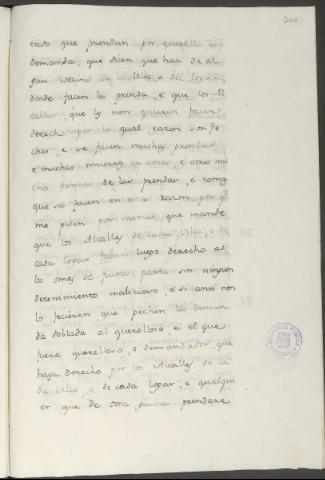 cento que prendan por querella o
demanda, que dicen que han de al
gun vecino de la Villa, o del logar,
donde facen la prenda, e que los Al
calles, que ly non quieren facer
derecho por la qual razon son fe
chas, e se facen muchas prendas
e muchas muertes en otra, e otros mu
chos dannos de las prendas, e toma
que se facen en esta razon por q.e
me piden por merced, que mande
que los Alcalles de cada Villa, o de
cada logar fagan luego derecho a
los omes de fuera parte sin ningun
detenimiento malicioso, e si ansi non
lo ficieren que pechen la deman
da doblada al querelloso, e el que
fuere querelloso, o demandador, que
haya derecho por los Alcalles de ca
da Villa, o de cada logar, e qualqui
er que de otra guisa prendare